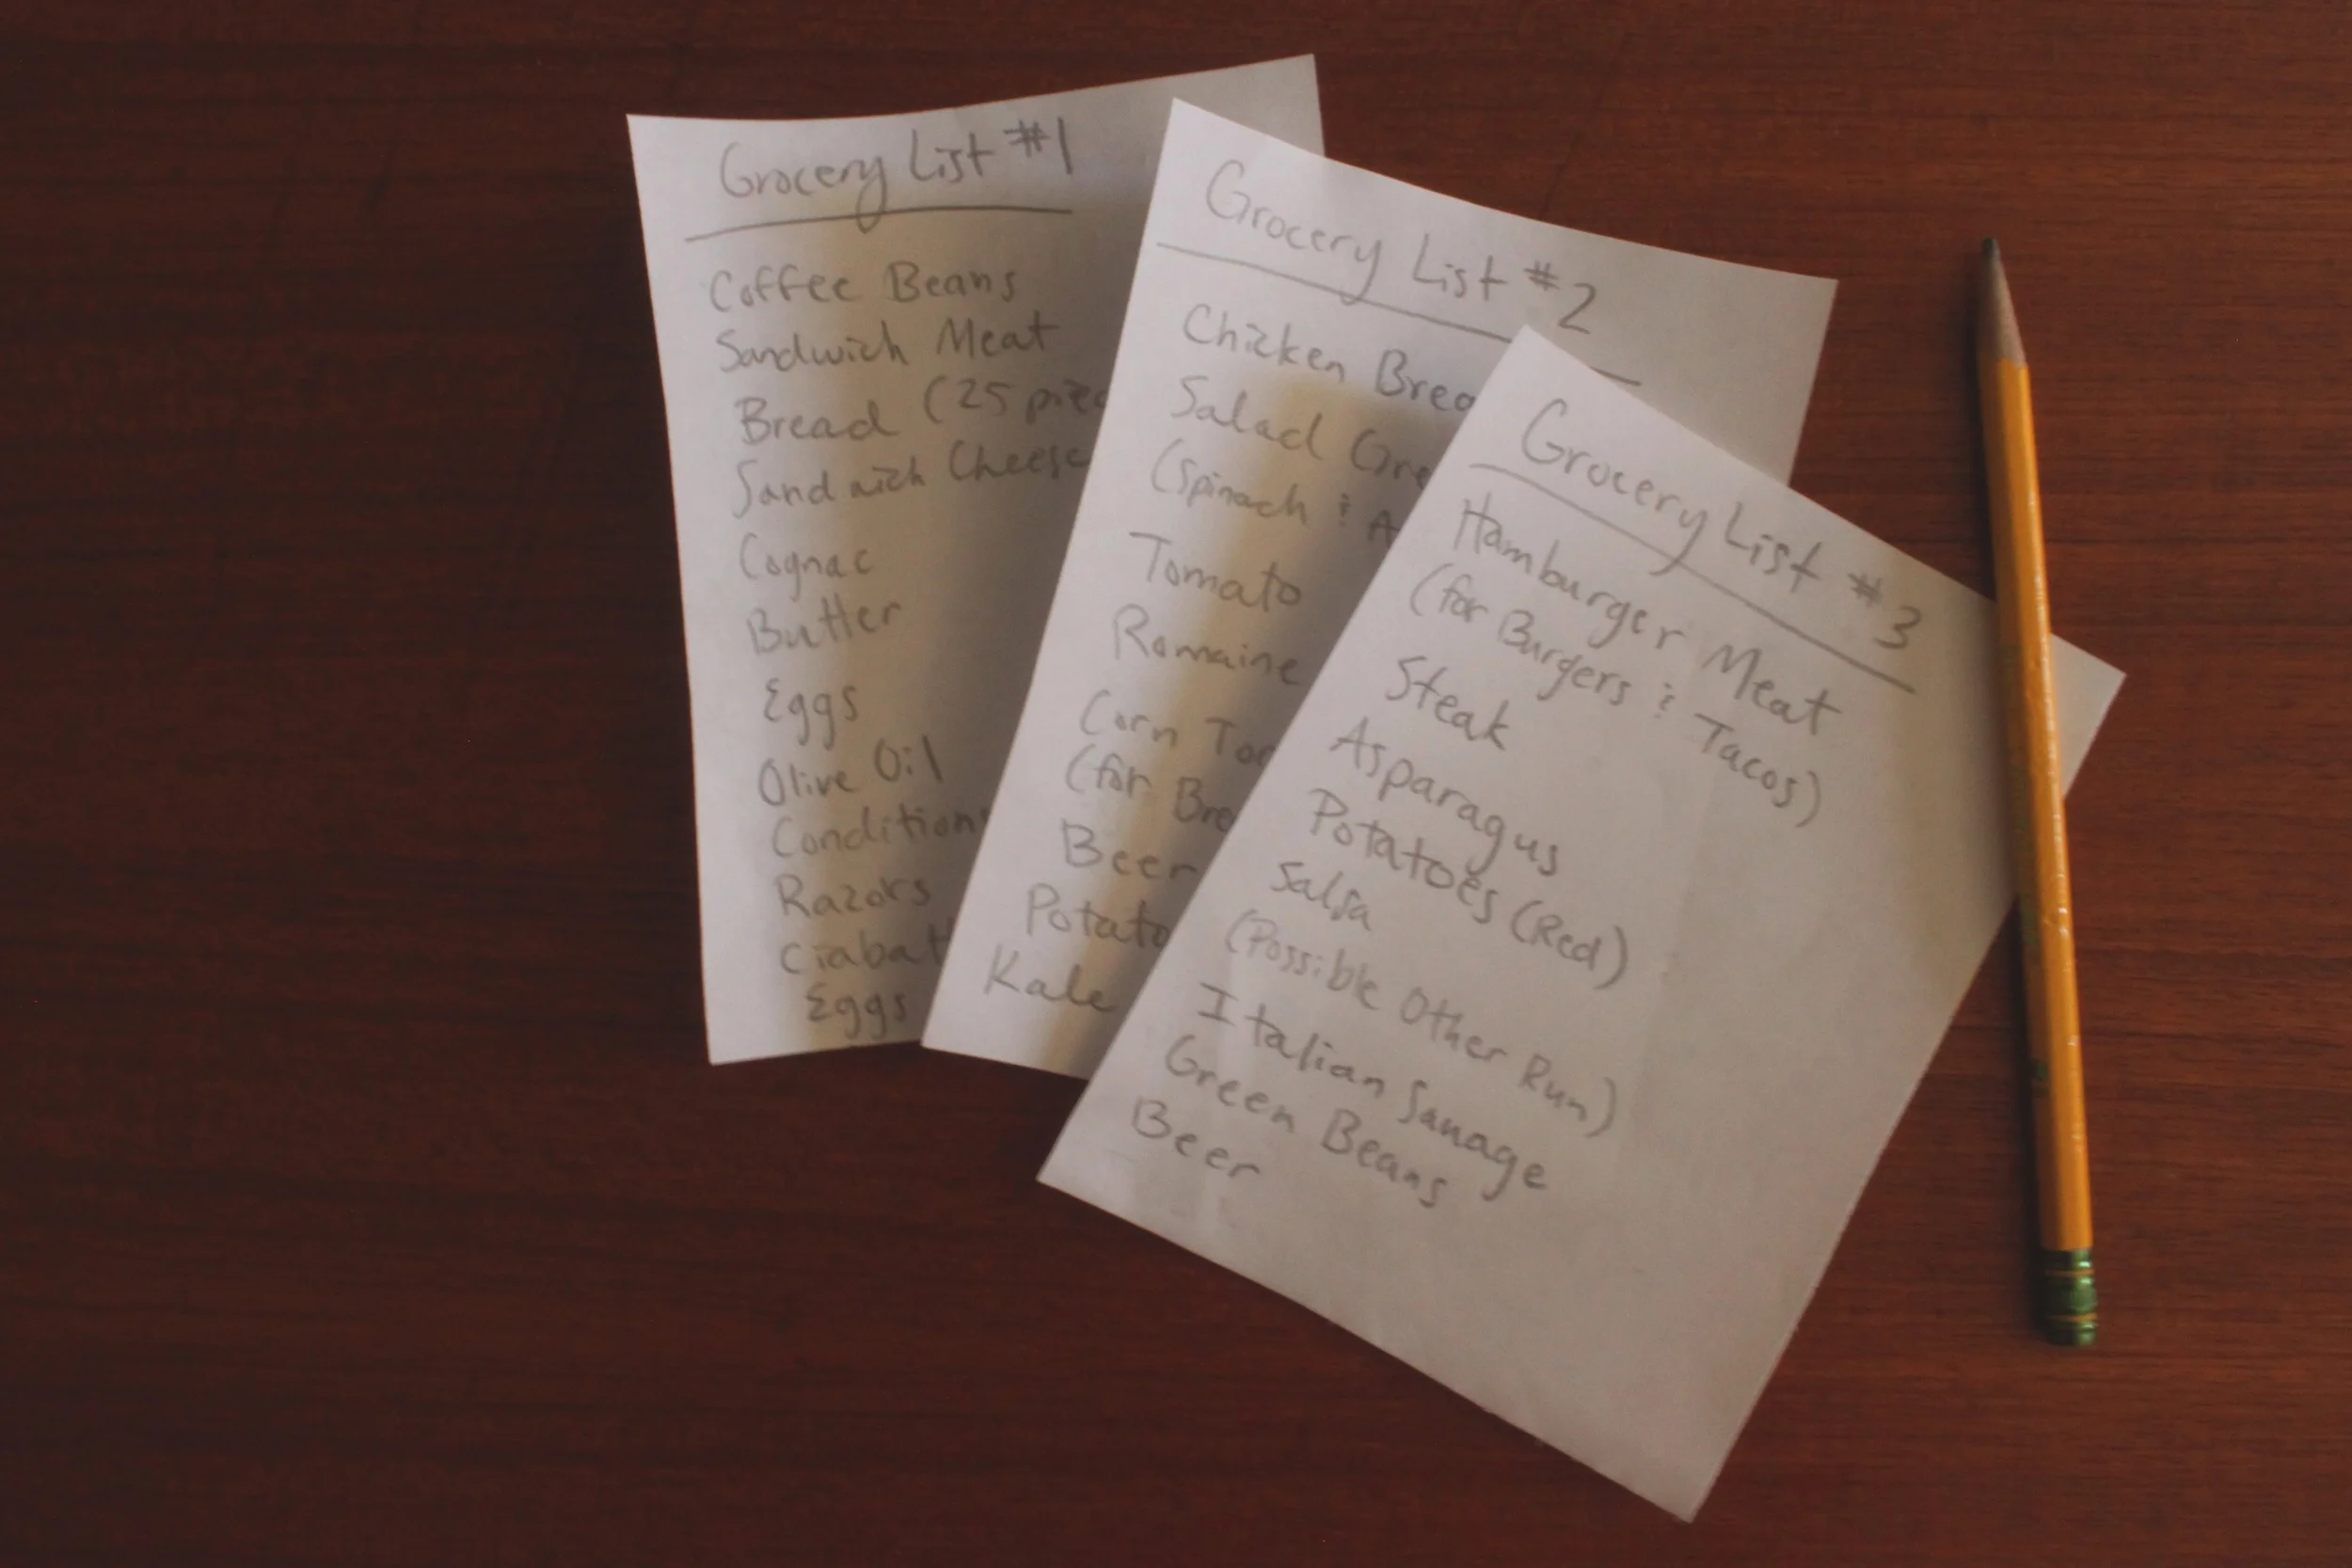 Grocery List #1
Coffee Beans
Sandwich Meat
Bread (25 piec
Sandwich Cheese
Cognac
Butter
Eggs
Olive Oil
Condition
Razors
Ciabatt
Eggs
Grocery List #2
Chicken Brea
Salad Gre
(Spinach & A
Tomato
Romaine
Corn Tor
(for Bre
Beer
Potato
Kale
Grocery List #3
Hamburger Meat
(for Burgers & Tacos)
Steak
Asparagus
Potatoes (Red)
Salsa
(Possible Other Run)
Italian Sauage
Green Beans
Beer